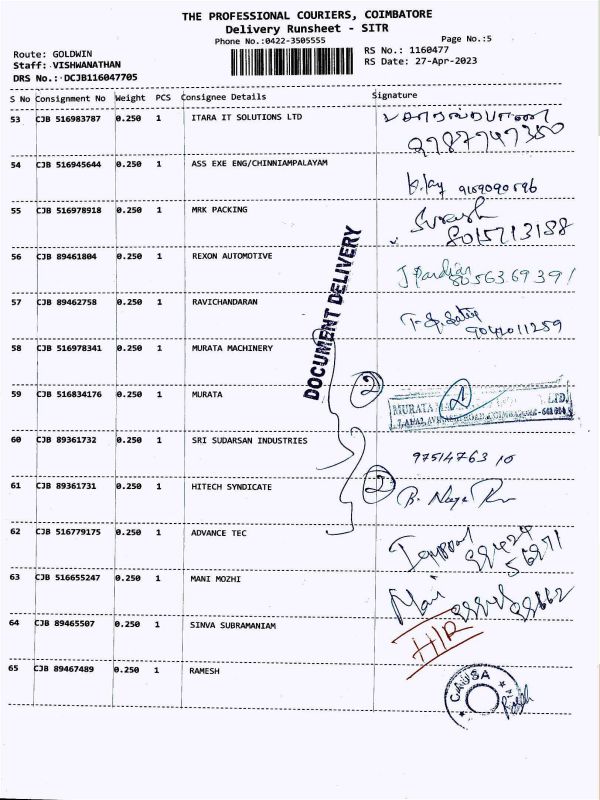 THE PROFESSIONAL COURIERS, COIMBATORE
Delivery Runsheet - SITR
Phone No.:0422-3505555
Page No.:5
Route: GOLDWIN
RS No.: 1160477
Staff: VISHWANATHAN
RS Date: 27-Apr-2023
DRS No.: DCJB116047705
S No Consignment No Weight PCS Consignee Details Signature
53 CJB 516983787 0.250 1 ITARA IT SOLUTIONS LTD
54 CJB 516945644 0.250 1 ASS EXE ENG/CHINNIAMPALAYAM
55 CJB 516978918 0.250 1 MRK PACKING
Suresh
8015713188
56 CJB 89461804 0.250 1 REXON AUTOMOTIVE
57 CJB 89462758 0.250 1 RAVICHANDARAN
9042011259
DOCUMENT DELIVERY
58 CJB 516978341 0.250 1 MURATA MACHINERY
2
59 CJB 516834176 0.250 1 MURATA
MURATA LTD.
60 CJB 89361732 0.250 1 SRI SUDARSAN INDUSTRIES
9751476310
61 CJB 89361731 0.250 1 HITECH SYNDICATE
2
62 CJB 516779175 0.250 1 ADVANCE TEC
63 CJB 516655247 0.250 1 MANI MOZHI
Mani
64 CJB 89465507 0.250 1 SINVA SUBRAMANIAM
H/R
65 CJB 89467489 0.250 1 RAMESH
CAUSA